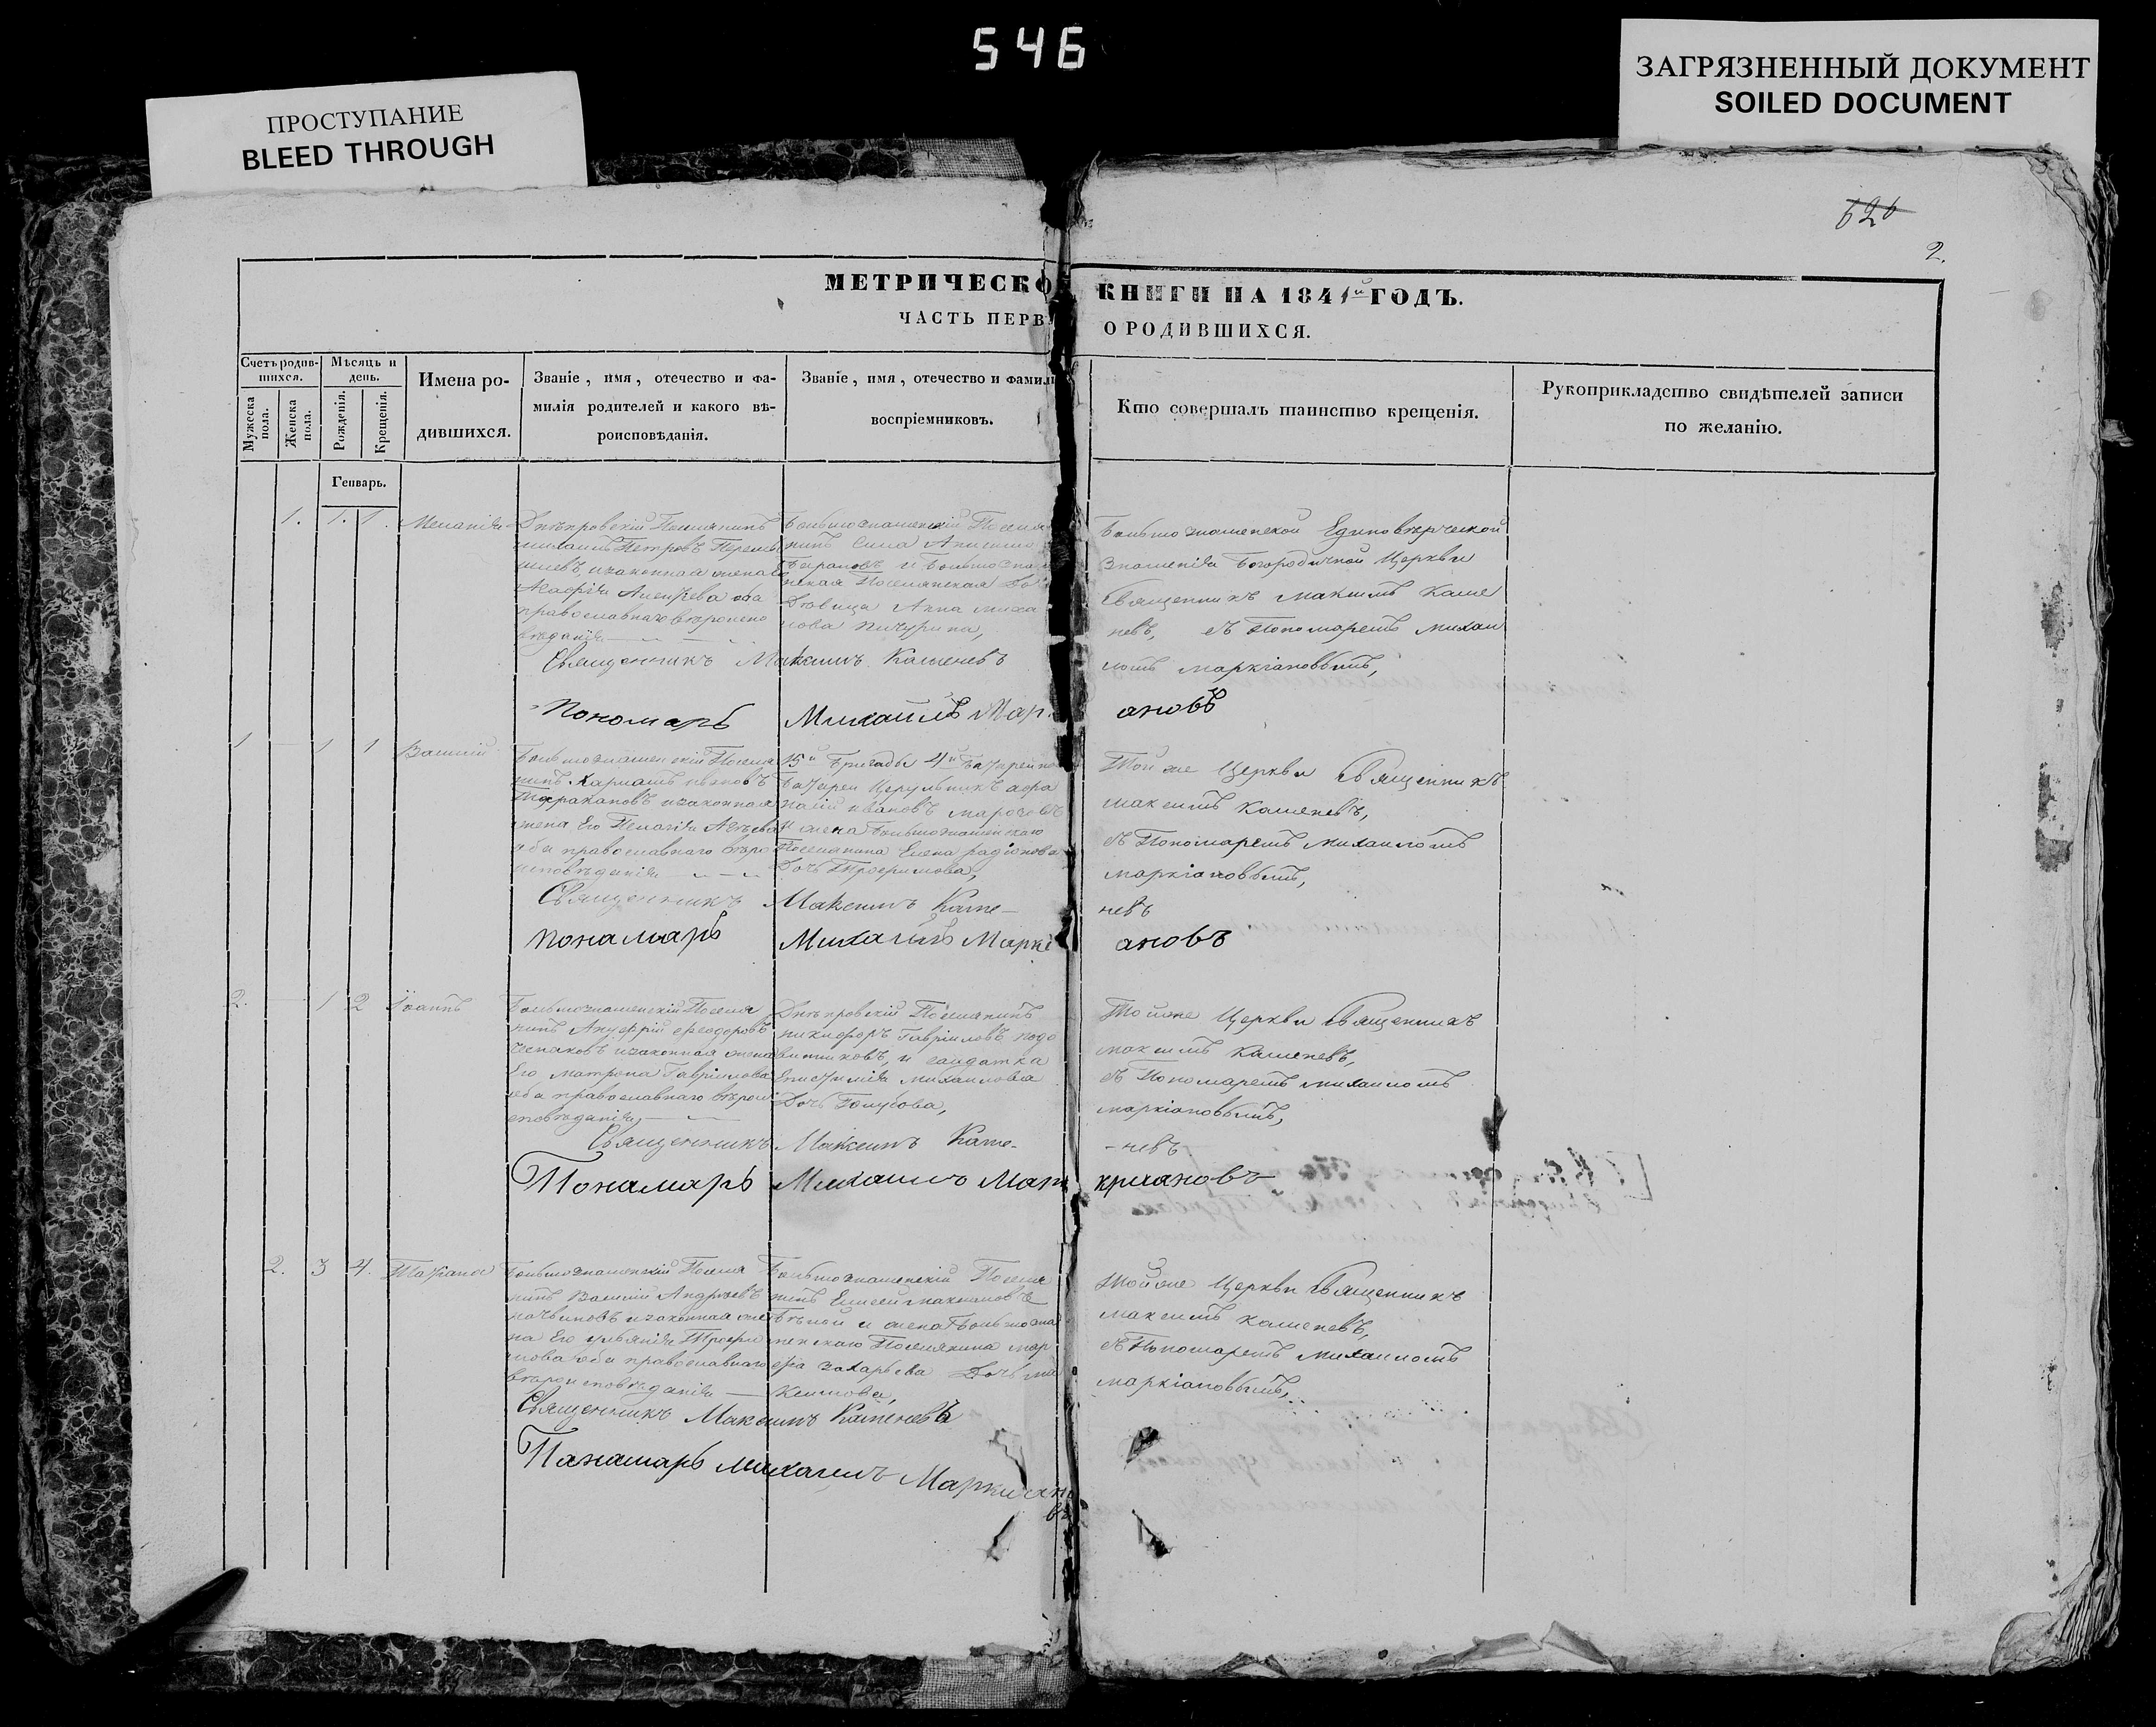 546
ПРОСТУПАНИЕ
BLEED THROUGH
ЗАГРЯЗНЕННЫЙ ДОКУМЕНТ
SOILED DOCUMENT
626
2.
МЕТРИЧЕСКО КНИГИ НА 1841й ГОДЪ.
ЧАСТЬ ПЕРВ О РОДИВШИХСЯ.
Счетъ родив-
шихся.
Мужеска
пола.
Женска
пола.
Мѣсяцъ и
день.
Рожденія.
Крещенія.
Имена ро-
дившихся.
Званіе, имя, отечество и фа-
милія родителей и какого вѣ-
роисповѣданія.
Званіе, имя, отечество и фамил
воспріемниковъ.
Кто совершалъ таинство крещенія.
Рукоприкладство свидѣтелей записи
по желанію.
Генварь.
1. 1. 1. Меланія
Днѣпровскій Поселянинъ
Михаилъ Петровъ
и законная жена
оба
православнаго вѣроиспо
вѣданія
Большознаменскій Посел
нинъ Сила
и Большозна
ская Поселянская До
Дѣвица Анна Миха
лова Пичурина,
Большознаменской Единовѣрческой
Знаменія Богородичной Церкви
Священникъ Максимъ Каме
невъ, съ Пономаремъ Михаи
ломъ Маркіановымъ,
Священникъ Максимъ Каменевъ
Пономарь Михаилъ Мар ановъ
1 1 1 Василій
Большознаменскій Поселя
нинъ Харлампъ Ивановъ
Таракановъ и законная
жена Его Пелагія
оба православнаго вѣро
исповѣданія
15й Бригады 4й Батарейно
Батареи Цырульникъ Афа
насій Ивановъ
и жена Большознаменскаго
Поселянина Елена Радіонова
Дочь Трофимова,
Той же Церкви Священникъ
Максимъ Каменевъ,
съ Пономаремъ Михаиломъ
Маркіановымъ,
Священникъ Максимъ Каме- невъ
Понамарь Михаилъ Маркі ановъ
2. 1 2 Іоаннъ
Большознаменскій Поселя
нинъ Ануфрій Феодоровъ
Чесноковъ и законная жена
Его Матрона Гавріилова
оба православнаго вѣрои
сповѣданія
Днѣпровскій Поселянинъ
Никифоръ Гавріиловъ
и салдатка
Епистимія Михаилова
Дочь Голубова,
Той же Церкви Священникъ
Максимъ Каменевъ,
съ Пономаремъ Михаиломъ
Маркіановымъ,
Священникъ Максимъ Каме- -невъ
Понамарь Михаилъ Мар киановъ
2. 3 4. Татіана
Большознаменскій Поселя
нинъ Василій Андреевъ
и законная же
на Его Ульянія Трофи
мова оба православнаго
вѣроисповѣданія
Большознаменскій Поселя
нинъ Елисей
и жена Большозна
менскаго Поселянина Мар
фа Захарьева Дочь
Той же Церкви Священникъ
Максимъ Каменевъ,
съ Пономаремъ Михаиломъ
Маркіановымъ,
Священникъ Максимъ Каменевъ
Панамарь Михаилъ Маркиано
въ